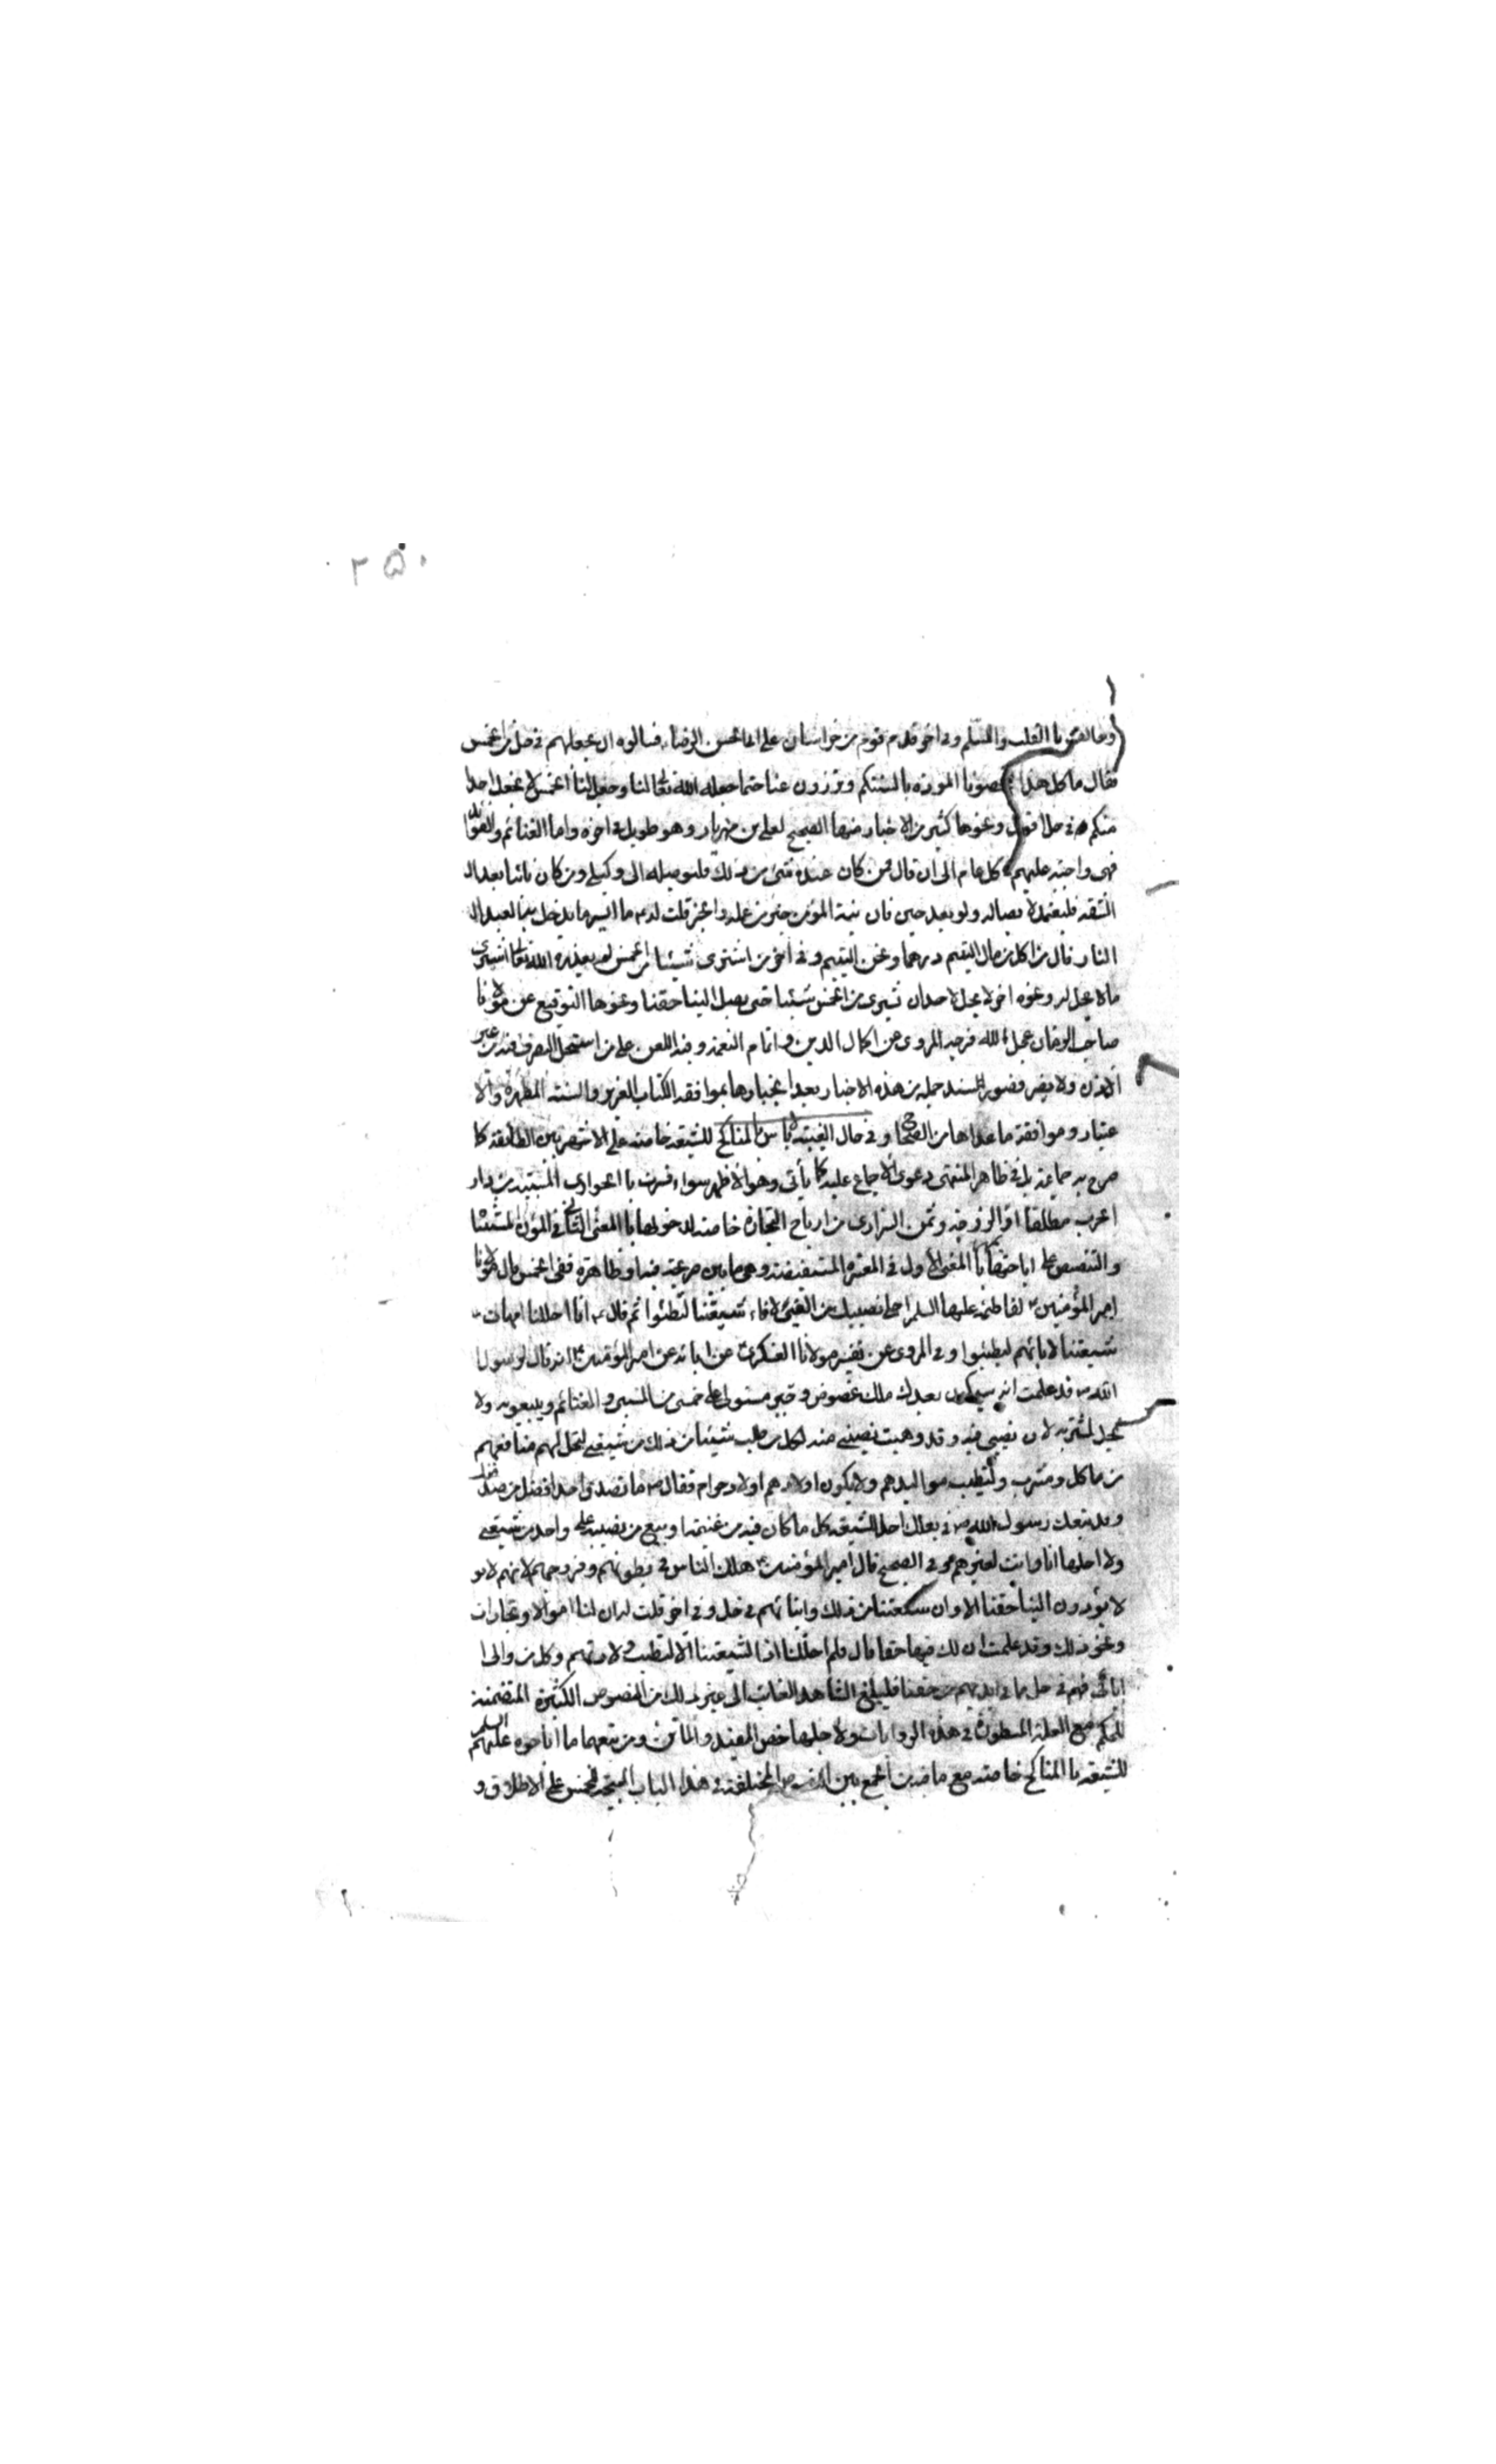 ۲۵۰
وخالف بالقلب والسلم وفي اخر قدم قوم من خراسان على ابي الحسن الرضا فسالوه ان يجعلهم في حل من الخمس
فقال ما كل هذا تمحضونا المودة بالسنتكم وتزوون عنا حقا جعله الله تعالى لنا وجعلنا الخمس لا نجعل احدا
منكم في حل اقول ونحوها كثير من الاخبار منها الصحيح لعلي بن مهزيار وهو طويل في اخره واما الغنائم والفوائد
فهي واجبة عليهم كل عام الى ان قال فمن كان عنده شيء من ذلك فليوصله الى وكيلي ومن كان نائيا بعيد الـ
الشقة فليتعمد لايصاله ولو بعد حين فان نية المؤمن خير من عمله والخبر قلت له ما ايسر ما يدخل به العبد الـ
النار قال من اكل من مال اليتيم درهما ونحن اليتيم وفي اخر من اشترى شيئا من الخمس لم يعذره الله تعالى اشترى
ما لا يحل له ونحوه اخر لا يحل لاحد ان يشتري من الخمس شيئا حتى يصل الينا حقنا ونحوها التوقيع عن مولانا
صاحب الزمان عجل الله فرجه المروي عن اكمال الدين واتمام النعمة وفيه اللعن على من استحل التصرف فيه من غير
الاذن ولا يضر قصور السند جملة من هذه الاخبار بعد انجبارها بموافقة الكتاب العزيز والسنة المطهرة والا
عتبار وموافقة ما عداها من الصحاح وفي حال الغيبة لا باس بالمناكح للشيعة خاصة على الاشهر بين الطائفة كما
صرح به جماعة بل في ظاهر المنتهى دعوى الاجماع عليه كما يأتي وهو الاظهر سواء فسرت بالجواري المسبية من دار
الحرب مطلقا او الزوجة وثمن السراري من ارباح التجارة خاصة لدخولها بالمعنى الثاني في المؤن المستثناة
والتنصيص على اباحتها بالمعنى الاول في المعتبرة المستفيضة وهي ما بين صريحة فيها وظاهرة ففي الخمس قال مولانا
امير المؤمنين لفاطمة عليها السلم احلي نصيبك من الفيء لاباء شيعتنا ليطيبوا ثم قال انا احللنا امهات
شيعتنا لابائهم ليطيبوا وفي المروي عن تفسير مولانا العسكري عن ابائه عن امير المؤمنين انه قال لرسول
الله قد علمت انه سيكون بعدك ملك غضوض وجبر فيستولي على خمسي من السبي والغنائم ويبيعونه ولا
يحل لمشتريه لان نصيبي فيه وقد وهبت نصيبي منه لكل من ملك شيئا من ذلك من شيعتي لتحل لهم منافعهم
من ماكل ومشرب ولتطيب مواليدهم ولا يكون اولادهم اولاد حرام فقال ما تصدق احد افضل من صدقتك
وقد تبعك رسول الله في فعلك احل للشيعة كل ما كان فيه من غنيمة وبيع من نصيبه على واحد من شيعتي
ولا احلها انا ولا انت لغيرهم وفي الصحيح قال امير المؤمنين هلك الناس في بطونهم وفروجهم لانهم لا يو
لا يؤدون الينا حقنا الا وان شيعتنا من ذلك وابنائهم في حل وفي اخر قلت له ان لنا اموالا وتجارات
ونحو ذلك وقد علمت ان لك فيها حقا قال فلم احللنا اذا لشيعتنا الا لتطيب ولادتهم وكل من والى ا
ابائي فهم في حل مما في ايديهم من حقنا فليبلغ الشاهد الغائب الى غير ذلك من النصوص الكثيرة المتضمنة
للحكم مع العلة المسطورة في هذه الروايات ولاجلها خص المفيد والماتن ومن تبعهما ما اباحوه عليهم السلم
للشيعة بالمناكح خاصة مع ما فيه من الجمع بين النصوص المختلفة في هذا الباب المبيحة للخمس على الاطلاق و